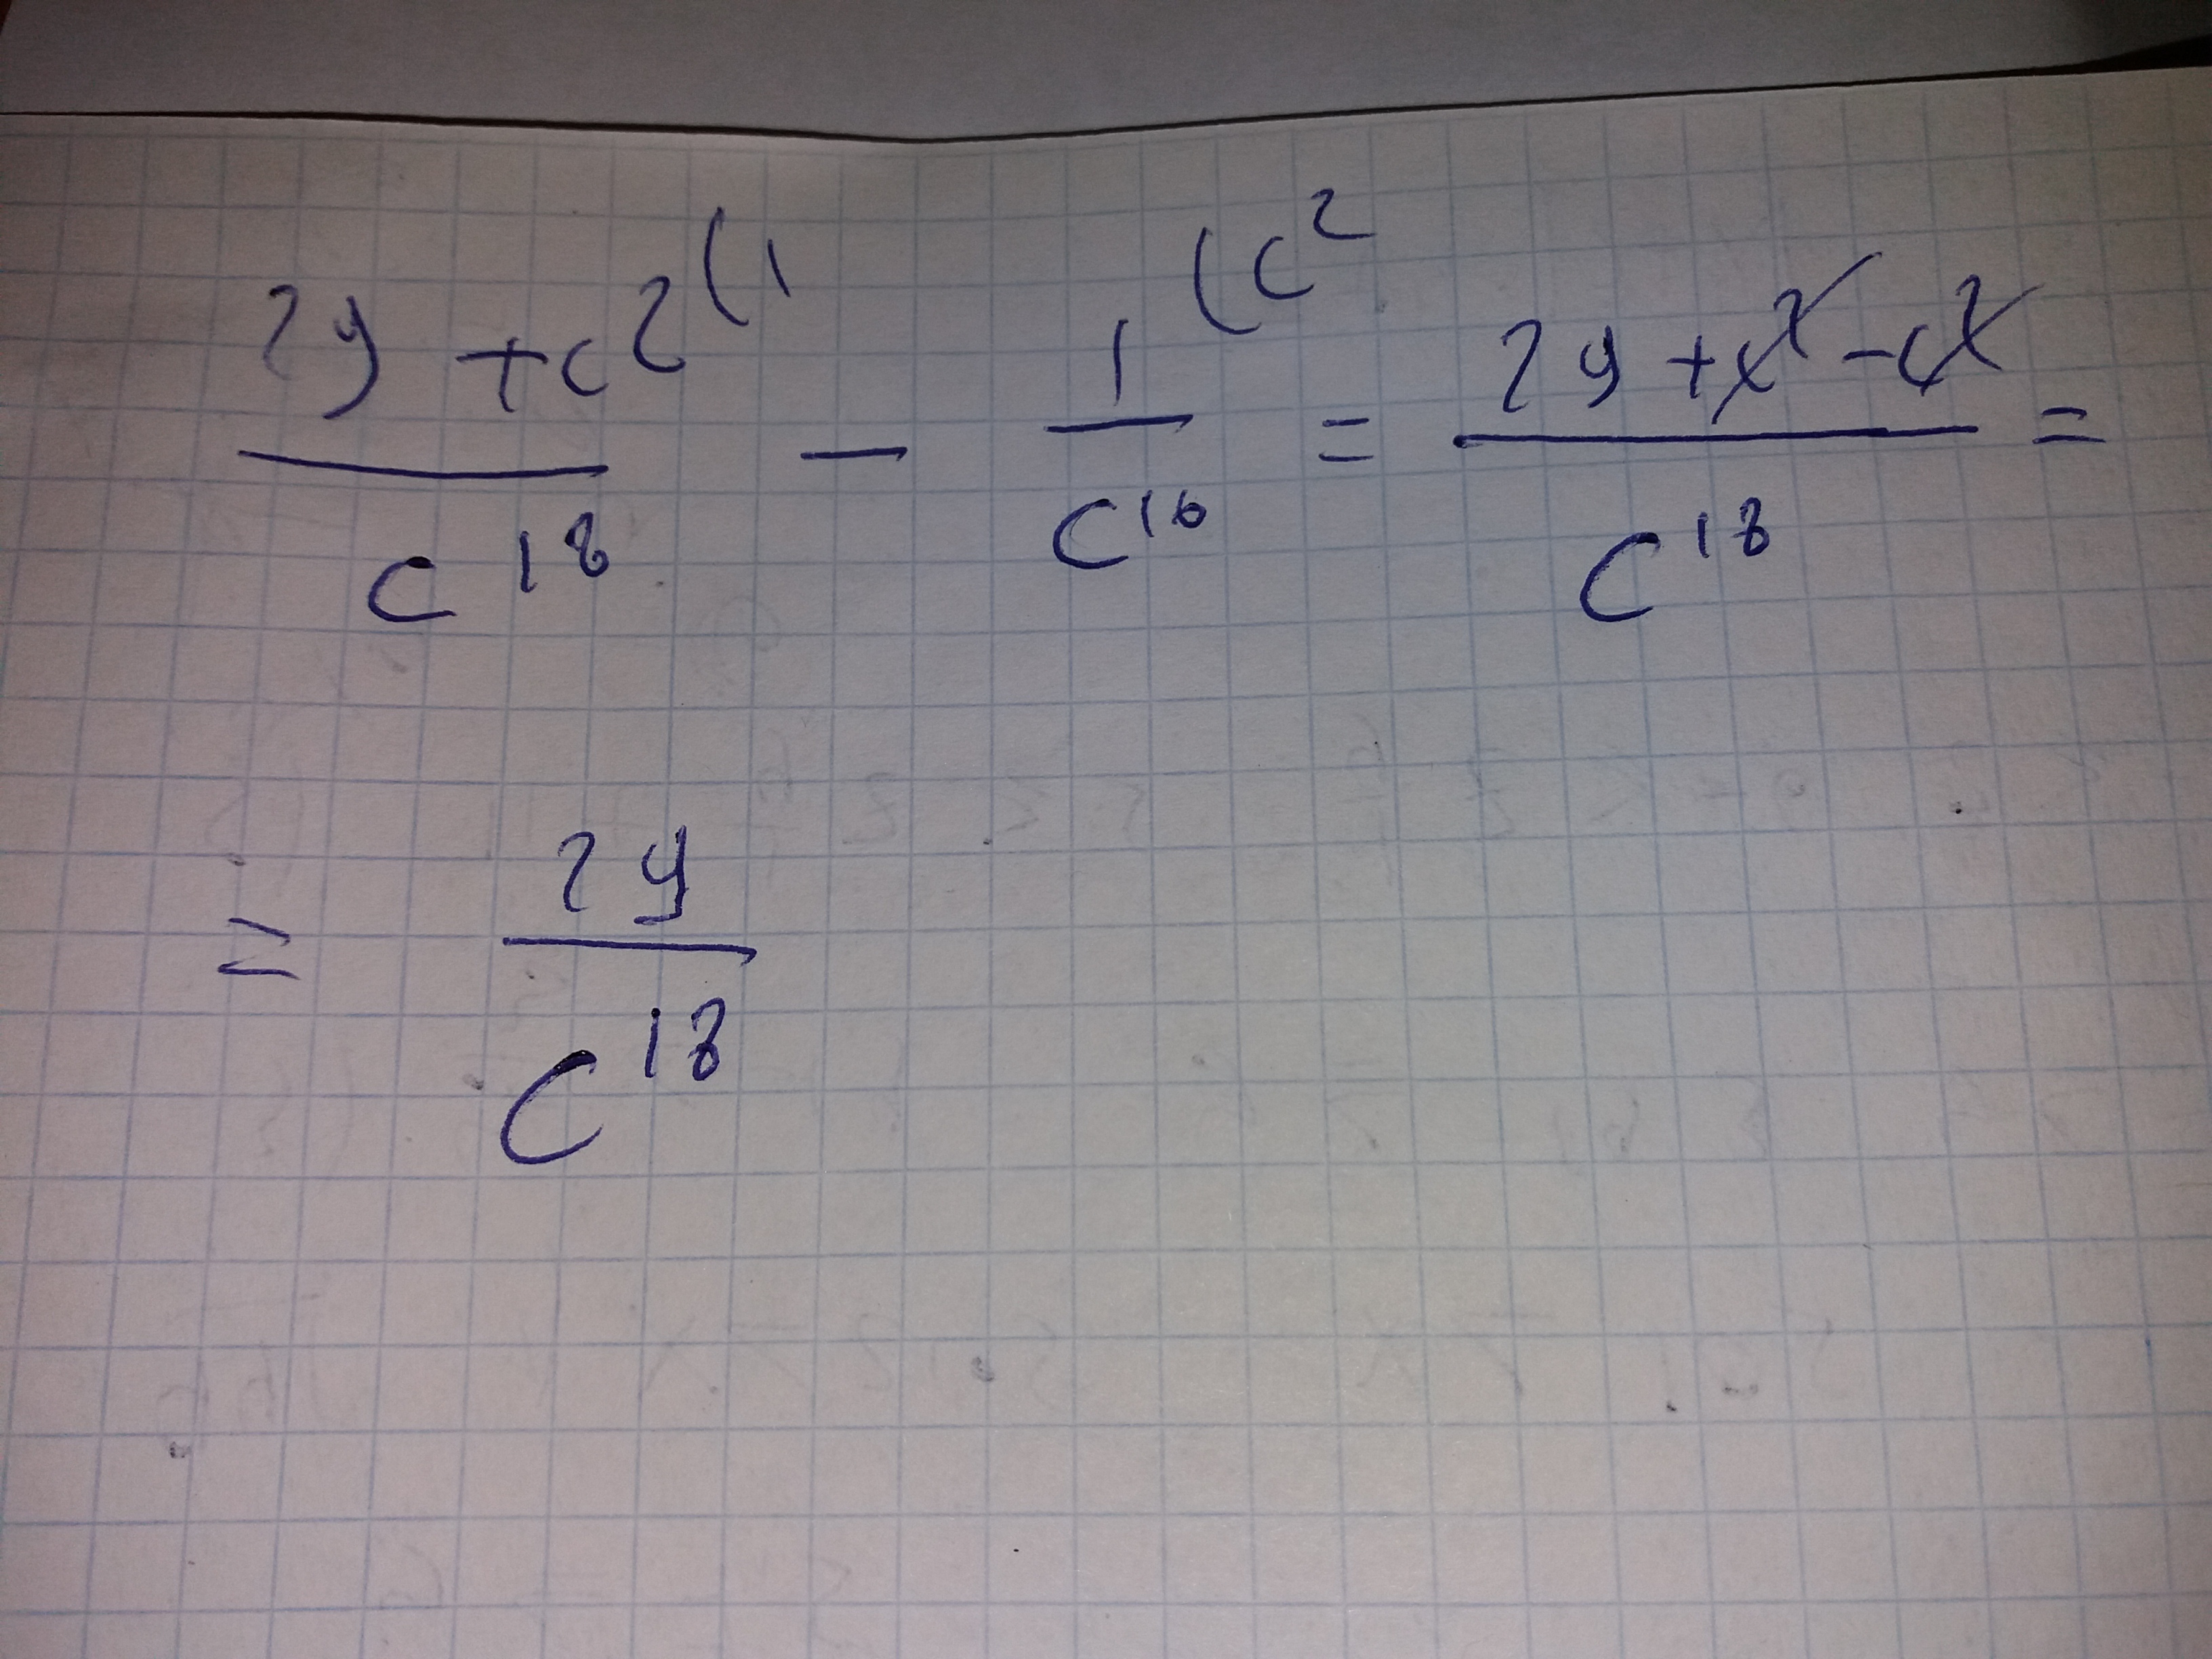 (2y + c²)/c¹⁸ (1 − 1/c¹⁶ (c² = (2y + c² − c²)/c¹⁸ =
= 2y/c¹⁸